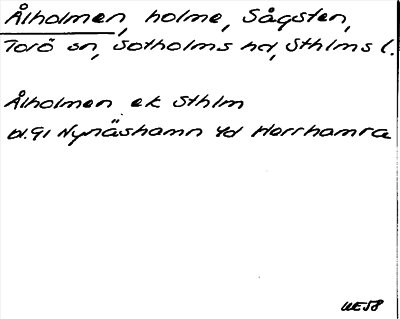 Ålholmen, holme, Sågsten,
Torö sn, Sotholms hd, Sthlms l.
Ålholmen ek Sthlm
bl. 91 Nynäshamn Yd Herrhamra
WE58